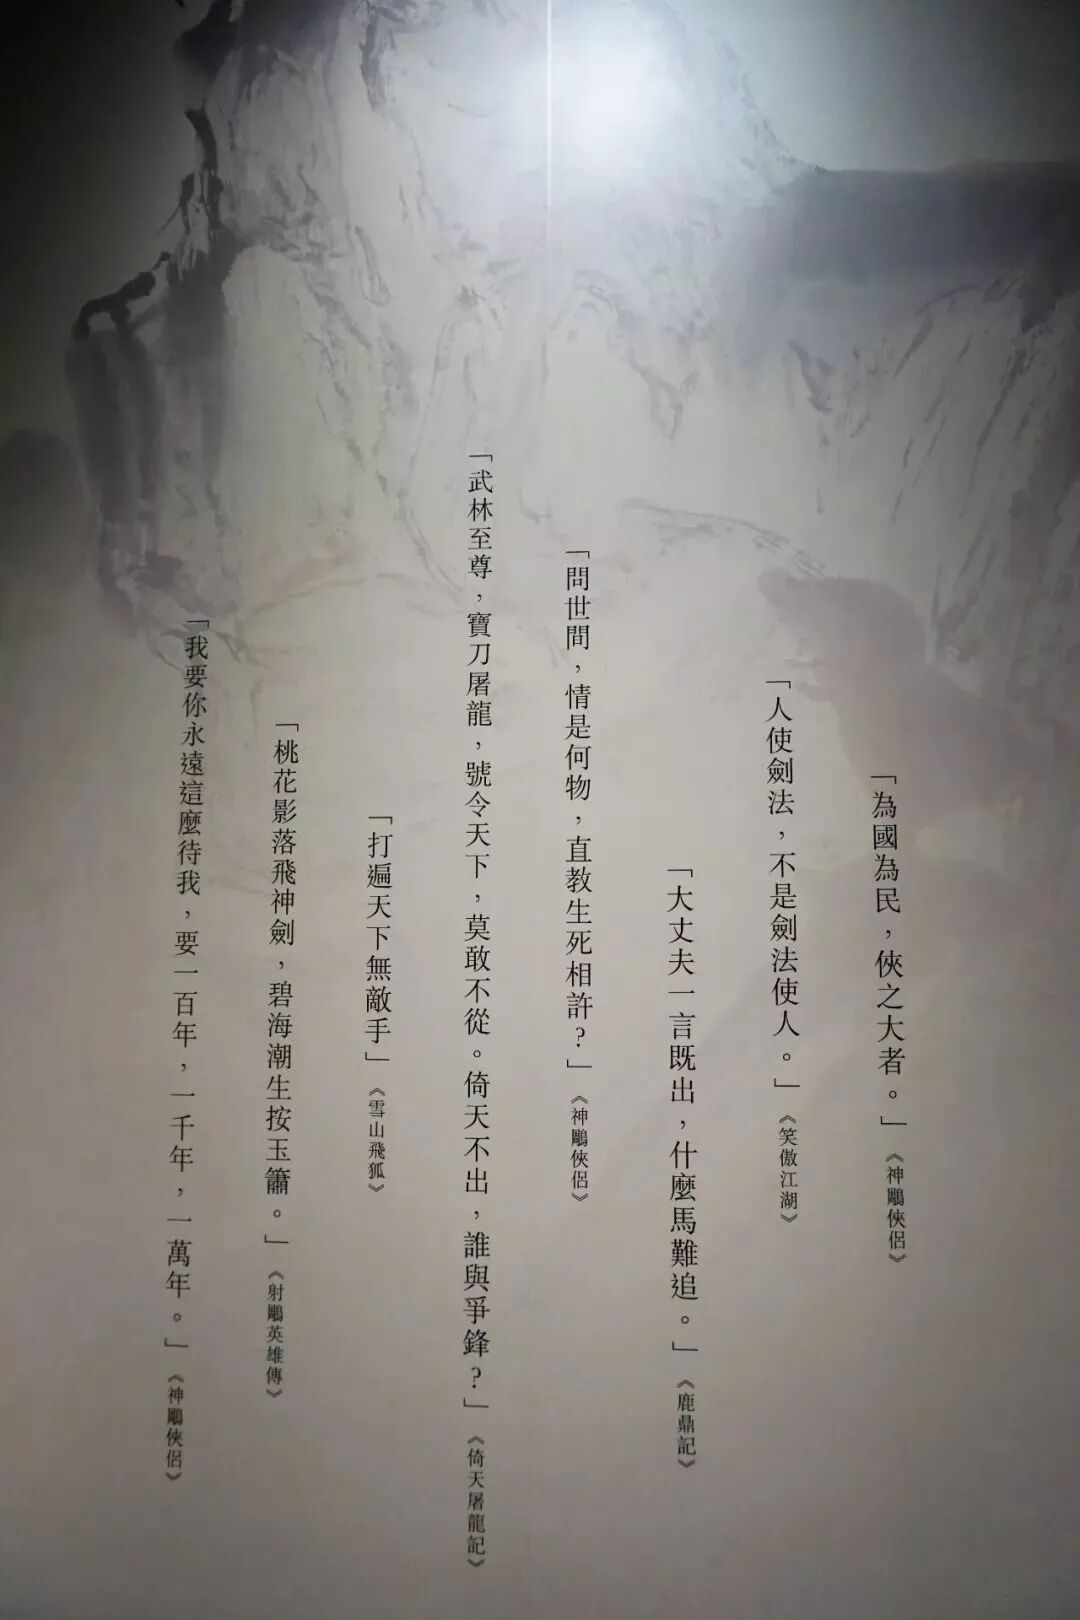 「為國為民，俠之大者。」《神鵰俠侶》
「人使劍法，不是劍法使人。」《笑傲江湖》
「大丈夫一言既出，什麼馬難追。」《鹿鼎記》
「問世間，情是何物，直教生死相許？」《神鵰俠侶》
「武林至尊，寶刀屠龍，號令天下，莫敢不從。倚天不出，誰與爭鋒？」《倚天屠龍記》
「打遍天下無敵手」《雪山飛狐》
「桃花影落飛神劍，碧海潮生按玉簫。」《射鵰英雄傳》
「我要你永遠這麼待我，要一百年，一千年，一萬年。」《神鵰俠侶》